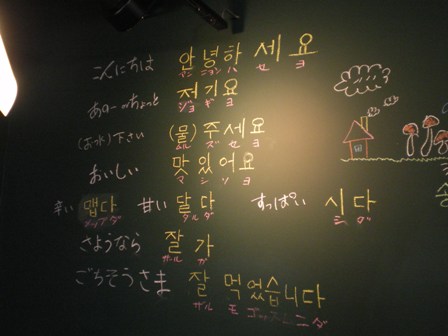 こんにちは 안녕하세요
アンニョンハセヨ
あのーゥちょっと 저기요
ジョギヨ
(お水)下さい (물)주세요
ムルズセヨ
おいしい 맛있어요
マシソヨ
辛い 맵다 甘い 달다 すっぱい 시다
メップダ タルダ シダ
さようなら 잘 가
ザール ガ
ごちそうさま 잘 먹었습니다
ザル モゴッスムニダ